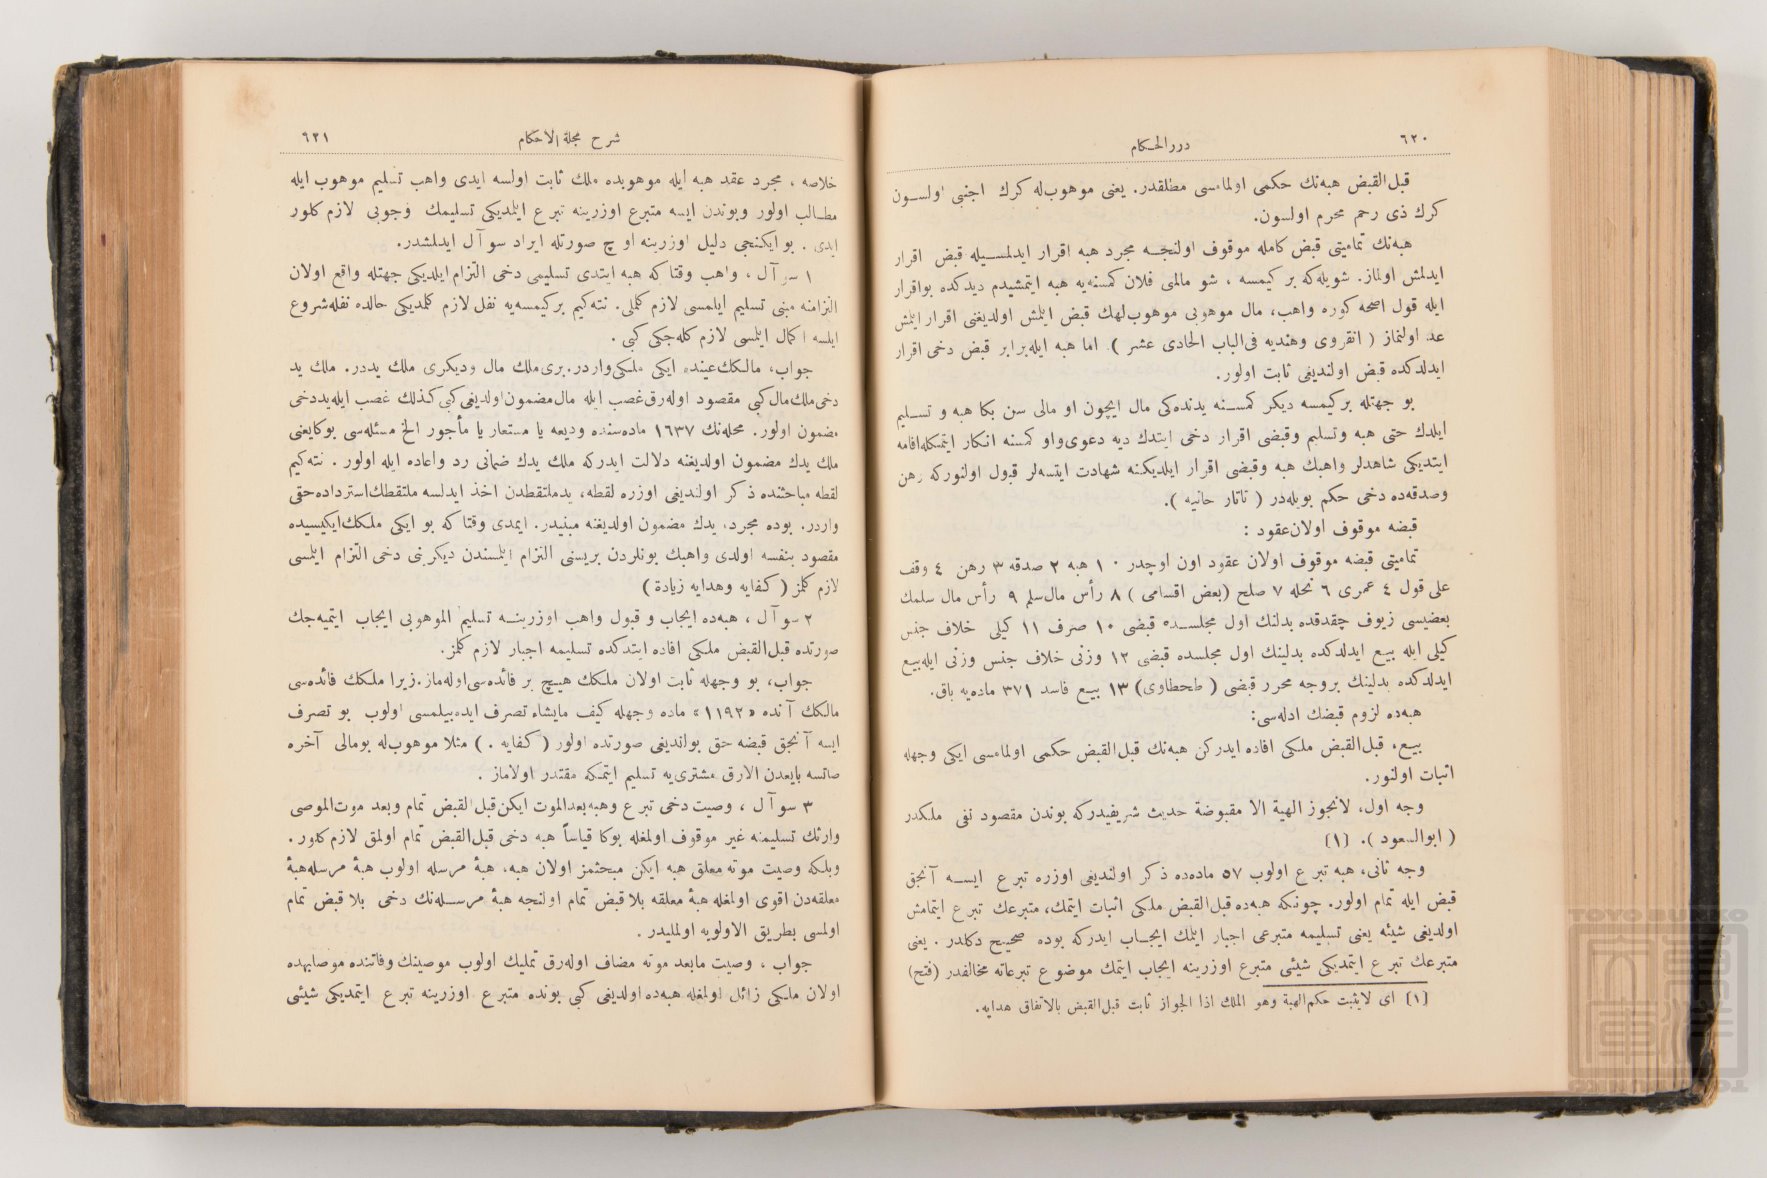 ٦٢٠
دررالحكام
قبل‌القبض هبه‌نك حكمى اولمامسى مطلقدر. يعنى موهوب‌له كرك اجنبى اولسون
كرك ذى رحم محرم اولسون.
هبه‌نك تماميتى قبض كامله موقوف اولنجه مجرد هبه اقرار ايدلمسيله قبض اقرار
ايدلمش اولماز. شويله‌كه بر كيمسه ، شو مالمى فلان كمسنه‌يه هبه ايتمشيدم ديدكده بواقرار
ايله قول اصحه كوره واهب، مال موهوبى موهوب‌لهك قبض ايلمش اولديغنى اقرار ايلمش
عد اولنماز ( انقروى وهنديه فى‌الباب الحادى عشر ). اما هبه ايله‌برابر قبض دخى اقرار
ايدلدكده قبض اولنديغى ثابت اولور.
بو جهتله بركيمسه ديكر كمسنه يدنده‌كى مال ايچون او مالى سن بكا هبه و تسليم
ايلدك حتى هبه وتسليم وقبضى اقرار دخى ايتدك ديه دعوى‌واو كمسنه انكار ايتمكله‌اقامه
ايتديكى شاهدلر واهبك هبه وقبضى اقرار ايلديكنه شهادت ايتسه‌لر قبول اولنوركه رهن
وصدقه‌ده دخى حكم بويله‌در ( تاتار خانيه ).
قبضه موقوف اولان‌عقود :
تماميتى قبضه موقوف اولان عقود اون اوچدر ٠ ١ هبه ٢ صدقه ٣ رهن ٤ وقف
على قول ٤ عمرى ٦ نحله ٧ صلح (بعض اقسامى ) ٨ رأس مال‌سلم ٩ رأس مال سلمك
بعضيسى زيوف چقدقده بدلنك اول مجلسده قبضى ١٠ صرف ١١ كيلى خلاف جنس
كيلى ايله بيع ايدلدكده بدلينك اول مجلسده قبضى ١٢ وزنى خلاف جنس وزنى ايله‌بيع
ايدلدكده بدلينك بروجه محرر قبضى ( طحطاوى) ١٣ بيع فاسد ٣٧١ ماده‌يه باق.
هبه‌ده لزوم قبضك ادله‌سى:
بيع، قبل‌القبض ملكى افاده ايدركن هبه‌نك قبل‌القبض حكمى اولمامسى ايكى وجهله
اثبات اولنور.
وجه اول، لاتجوز الهبة الا مقبوضة حديث شريفيدركه بوندن مقصود نفى ملكدر
( ابوالسعود ). [١]
وجه ثانى، هبه تبرع اولوب ٥٧ ماده‌ده ذكر اولنديغى اوزره تبرع ايسه آنجق
قبض ايله تمام اولور. چونكه هبه‌ده قبل‌القبض ملكى اثبات ايتمك، متبرعك تبرع ايتمامش
اولديغى شيئه يعنى تسليمه متبرعى اجبار ايلمك ايجاب ايدركه بوده صحيح دكلدر . يعنى
متبرعك تبرع ايتمديكى شيئى متبرع اوزرينه ايجاب ايتمك موضوع تبرعاته مخالفدر (فتح)
[١] اى لايثبت حكم‌الهبة وهو الملك اذا الجواز ثابت قبل‌القبض بالاتفاق هدايه.
شرح مجلة الاحكام
٦٢١
خلاصه ، مجرد عقد هبه ايله موهوبده ملك ثابت اولسه ايدى واهب تسليم موهوب ايله
مطالب اولور وبوندن ايسه متبرع اوزرينه تبرع ايلمديكى تسليمك وجوبى لازم كلور
ايدى . بوايكنجى دليل اوزرينه اوچ صورتله ايراد سوآل ايدلمشدر.
١ سوآل ، واهب وقتا كه هبه ايتدى تسليمى دخى التزام ايلديكى جهتله واقع اولان
التزامنه مبنى تسليم ايلمسى لازم كلملى. نته‌كيم بركيمسه‌يه نفل لازم كلمديكى حالده نفله‌شروع
ايلسه اكمال ايلمسى لازم كله‌جكى كبى .
جواب، مالكك‌عينده ايكى ملكى‌واردر.برى‌ملك مال وديكرى ملك يددر. ملك يد
دخى‌ملك‌مال‌كبى مقصود اوله‌رق‌غصب ايله مال‌مضمون‌اولديغى‌كبى‌كذلك غصب ايله‌يددخى
مضمون اولور. مجله‌نك ١٦٣٧ ماده‌سنده وديعه يا مستعار يا مأجور الخ مسئله‌سى بوكايعنى
ملك يدك مضمون اولديغنه دلالت ايدركه ملك يدك ضمانى رد واعاده ايله اولور . نته‌كيم
لقطه مباحثنده ذكر اولنديغى اوزره لقطه، يدملتقطدن اخذ ايدلسه ملتقطك‌استرداده‌حقى
واردر. بوده مجرد، يدك مضمون اولديغنه مبنيدر. ايمدى وقتا كه بو ايكى ملكك‌ايكيسيده
مقصود بنفسه اولدى واهبك بونلردن بريسنى التزام ايلمسندن ديكرينى دخى التزام ايلمسى
لازم كلمز ( كفايه وهدايه زيادة )
٢ سوآل ، هبه‌ده ايجاب و قبول واهب اوزرينه تسليم الموهوبى ايجاب ايتميه‌جك
صورتده قبل‌القبض ملكى افاده ايتدكده تسليمه اجبار لازم كلمز.
جواب، بو وجهله ثابت اولان ملكك هيچ بر فائده‌سى‌اوله‌ماز.زيرا ملكك فائده‌سى
مالكك آنده «١١٩٢» ماده وجهله كيف مايشاء تصرف ايده‌بيلمسى اولوب بو تصرف
ايسه آنجق قبضه حق بولنديغى صورتده اولور ( كفايه . ) مثلا موهوب‌له بومالى آخره
صاتسه بايعدن الارق مشترى‌يه تسليم ايتمكه مقتدر اولاماز .
٣ سوآل ، وصيت دخى تبرع وهبه‌بعدالموت ايكن‌قبل القبض تمام وبعد موت‌الموصى
وارثك تسليمنه غير موقوف اولمغله بوكا قياساً هبه دخى قبل‌القبض تمام اولمق لازم كلور.
وبلكه وصيت موته معلق هبه ايكن مبحثمز اولان هبه، هبهٔ مرسله اولوب هبهٔ مرسله‌هبهٔ
معلقه‌دن اقوى اولمغله هبهٔ معلقه بلا قبض تمام اولنجه هبهٔ مرسله‌نك دخى بلا قبض تمام
اولمسى بطريق الاولويه اولمليدر .
جواب ، وصيت مابعد موته مضاف اوله‌رق تمليك اولوب موصينك وفاتنده موصابهده
اولان ملكى زائل اولمغله هبه‌ده اولديغى كبى بونده متبرع اوزرينه تبرع ايتمديكى شيئى
TOYO BUNKO